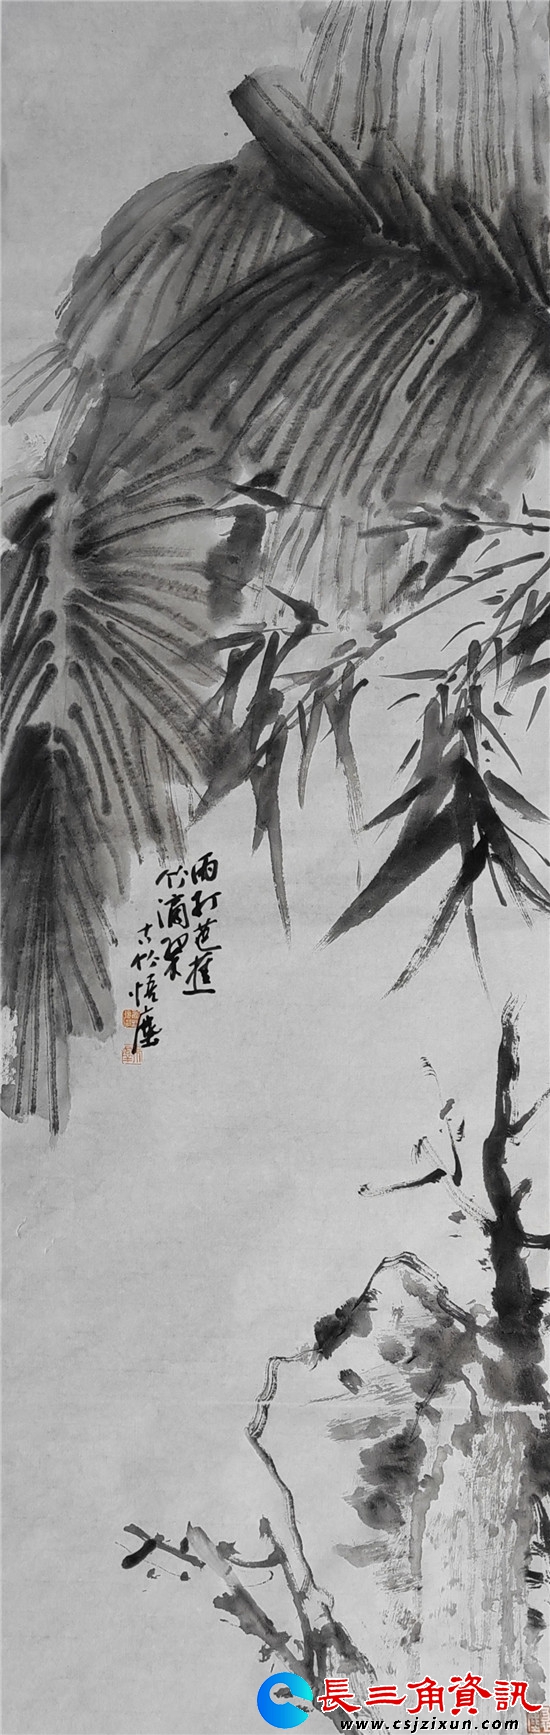 雨打芭蕉
竹滴翠
古竹悟塵
長三角資訊
www.csjzixun.com